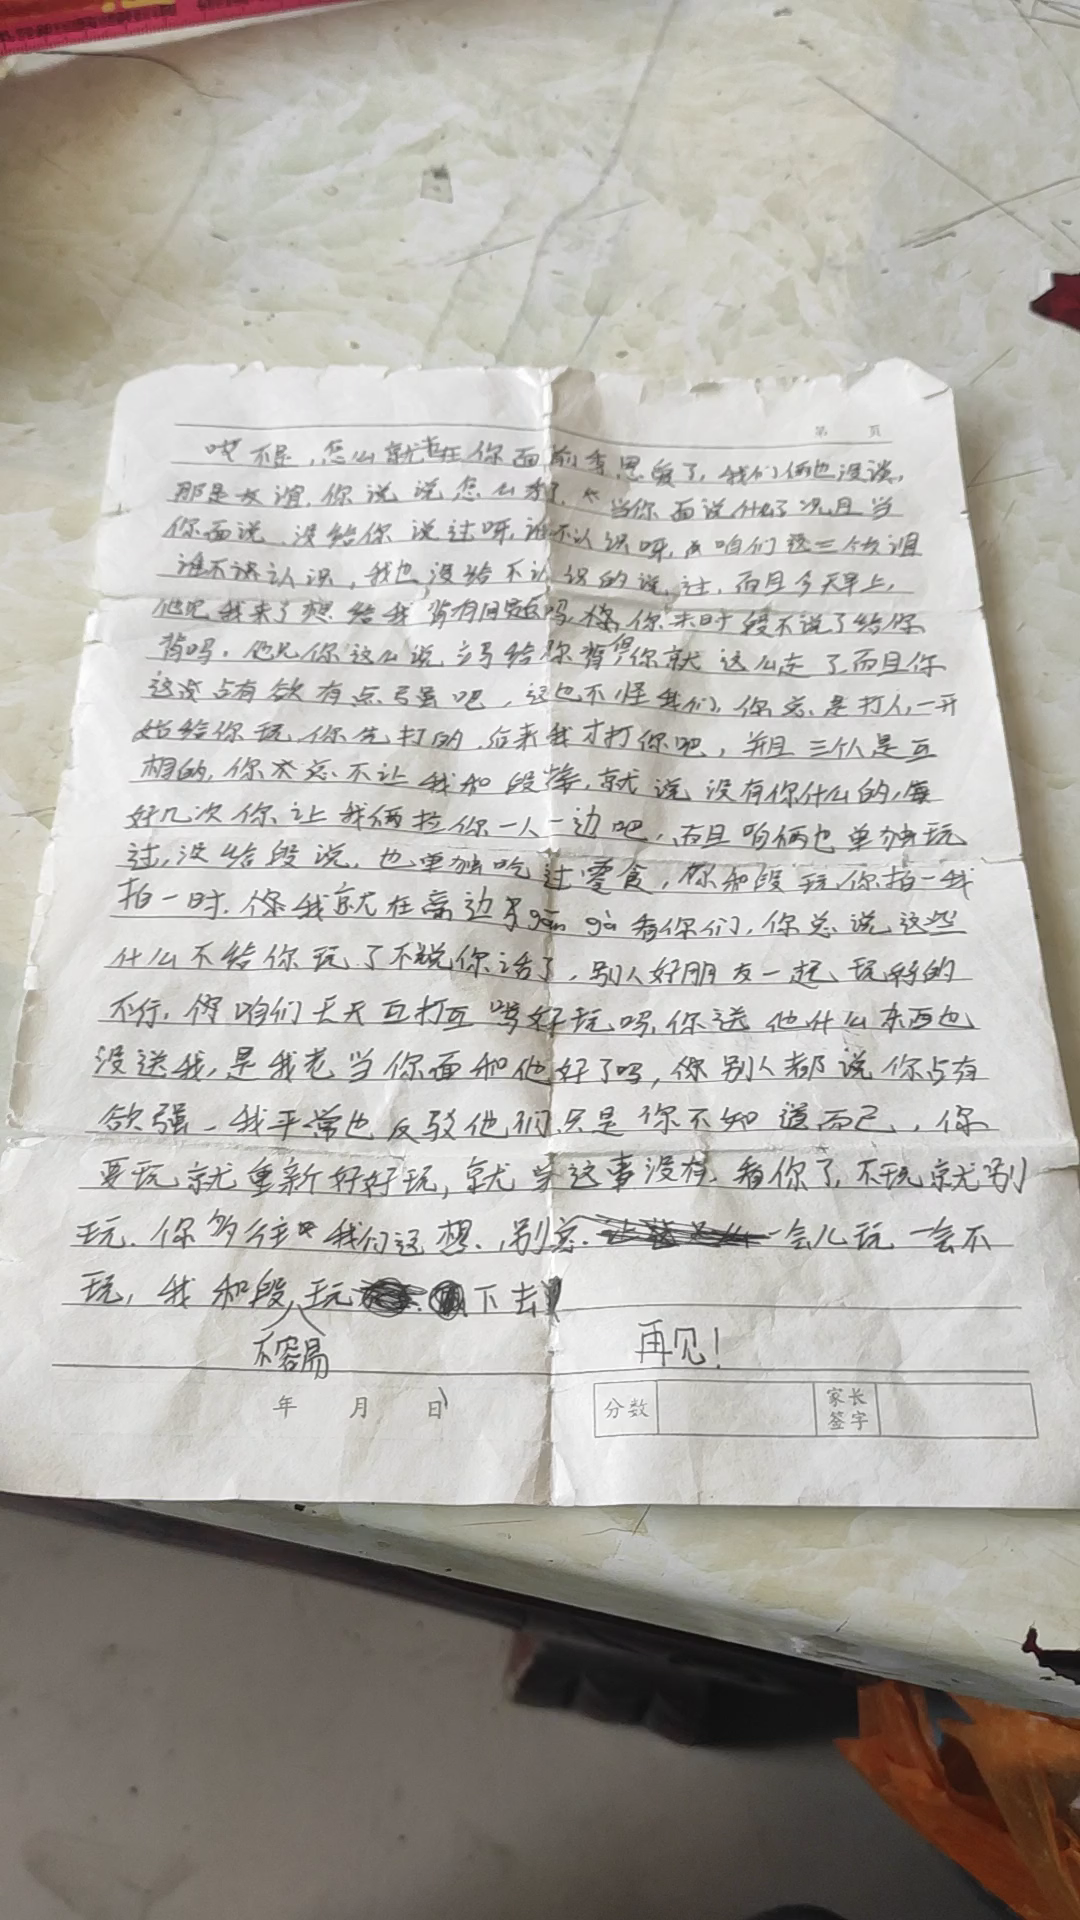 第 页
哎不是,怎么就在你面前秀恩爱了,我们俩也没谈,
那是友谊,你说说怎么 当你面说什么了况且当
你面说,没给你说过呀,谁不认识呀,咱们这三个友谊
谁不认识,我也没给不认识的说过,而且今天早上,
他见我来了想给我背 吗,你来时 不说了给你
背吗,他见你这么说立马给你背得你就这么走了而且你
这没占有欲有点强吧,这也不怪我们,你总是打人,一开
始给你玩,你先打的,后来我才打你吧,并且三个人是互
相的,你总不让我和段 ,就说没有你什么的,每
好几次你让我俩拉你一人一边吧,而且咱俩也单独玩
过,没给段说,也单独吃过零食,你和段玩,你拍一我
拍一时,我就在旁边gān gà看你们,你总说这些
什么不给你玩了不说你话了,别人好朋友一起玩好的
不行,咱们天天互打互骂好玩吗,你送他什么东西也
没送我,是我老当你面和他好了吗,别人都说你占有
欲强,我平常也反驳他们,只是你不知道而已,你
要玩就重新好好玩,就当这事没有,看你了,不玩就别
玩,你多往我们这想,别总一会儿玩一会不
玩,我和段玩下去
不容易
再见!
年 月 日
分数 家长签字